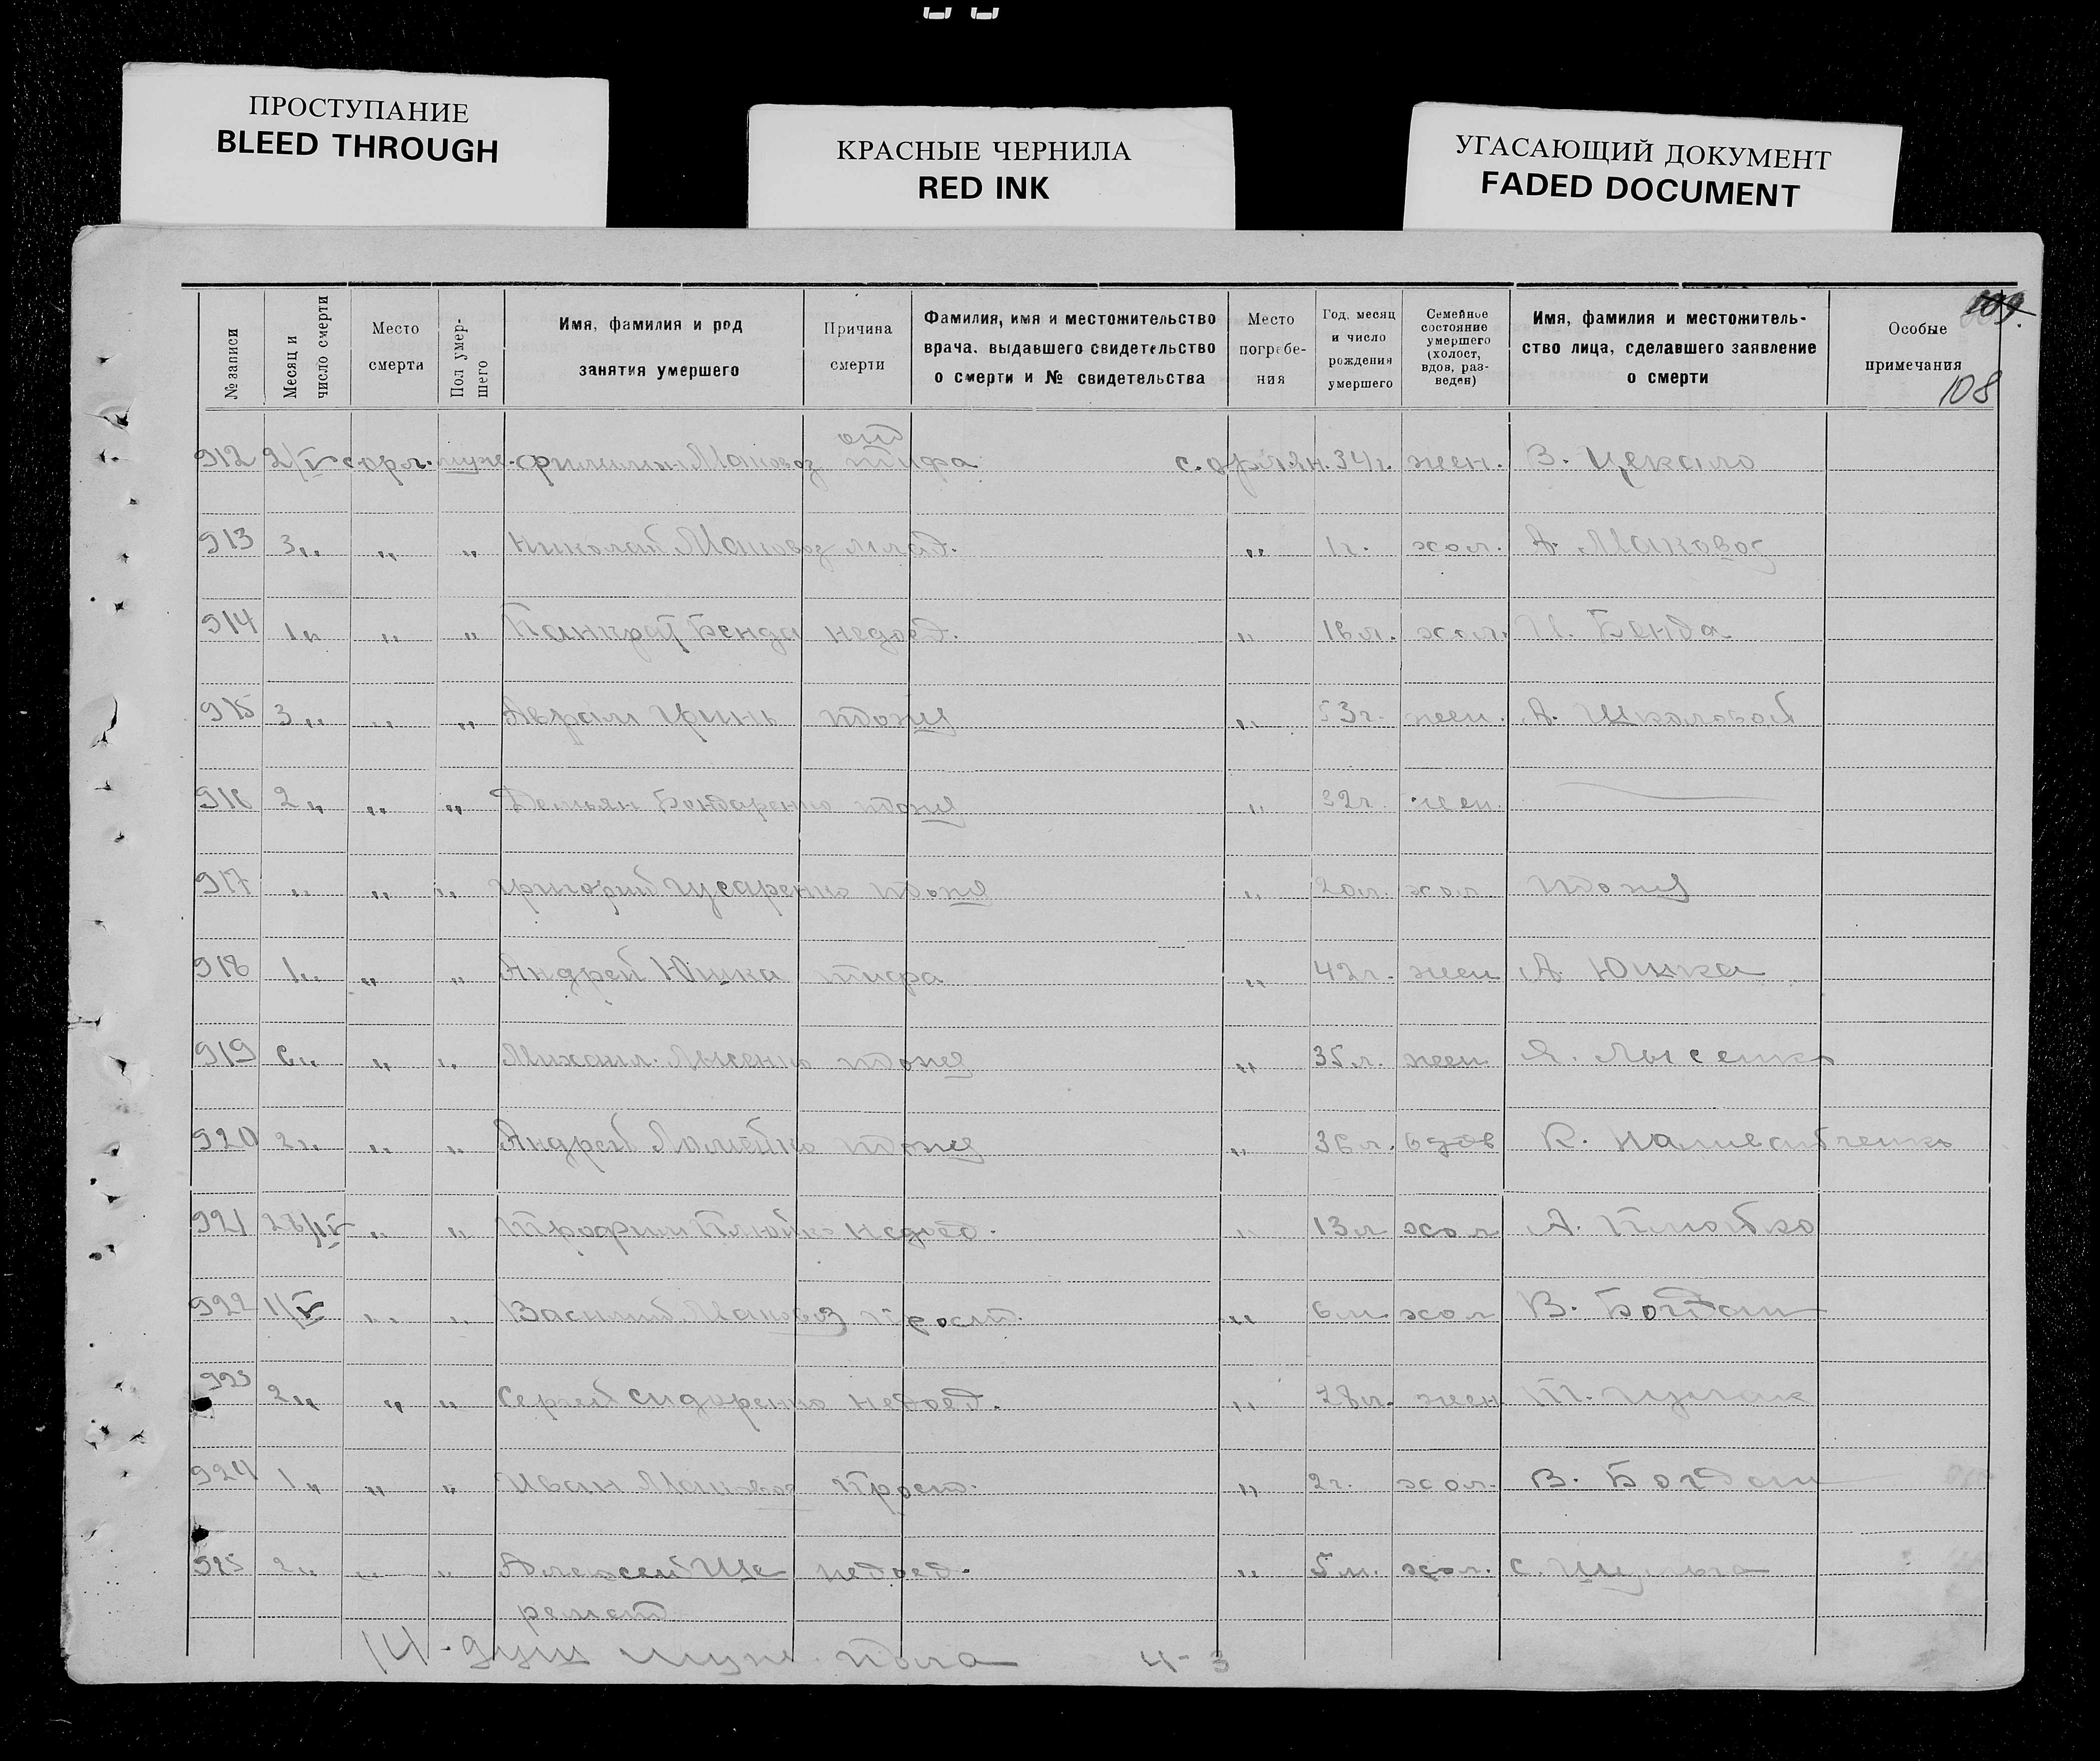 ПРОСТУПАНИЕ
BLEED THROUGH
КРАСНЫЕ ЧЕРНИЛА
RED INK
УГАСАЮЩИЙ ДОКУМЕНТ
FADED DOCUMENT
109.
108
№ записи
Месяц и число смерти
Место смерта
Пол умершего
Имя, фамилия и род занятия умершего
Причина смерти
Фамилия, имя и местожительство врача. выдавшего свидетельство о смерти и № свидетельства
Место погребения
Год, месяц и число рождения умершего
Семейное состояние умершего (холост, вдов, разведен)
Имя, фамилия и местожительство лица, сделавшего заявление о смерти
Особые примечания
912 2/V с. орл. муж. Маковоз от тифа 34 г. жен. В. Цекало
913 3 „ „ „ Николай Маковоз млад. „ 1 г. хол. А. Маковоз
914 1 „ „ „ Панкрат Бенда недоед. „ 16 л. хол. И. Бенда
915 3 „ „ „ Аврам Гринь тоже „ 53 г. жен. А.
916 2 „ „ „ Демьян Бондаренко тоже „ 32 г. жен.
917 „ „ „ Григорий Гусаренко тоже „ 20 л. хол тоже
918 1 „ „ „ Андрей Юшка тифа „ 42 г. жен А. Юшка
919 „ „ „ Михаил Лысенко тоже „ 35 л. жен Я. Лысенко
920 2 „ „ „ Андрей тоже „ 36 л. вдов К. Наливайченко
921 28/IV „ „ Трофим Плюйко недоед. „ 13 л хол А. Плюйко
922 1/V „ „ Василий Маковоз прост. „ 6 м хол В. Богдан
923 2 „ „ „ Сергей Сидоренко недоед. „ 28 л. жен. П.
924 1 „ „ „ Иван Маковоз прост. „ 2 г. хол. В. Богдан
925 2 „ „ „ Алексей Ше недоед. „ 5 м. хол. С. Шульга
ремет
14 - душ муж. пола 4 - 3